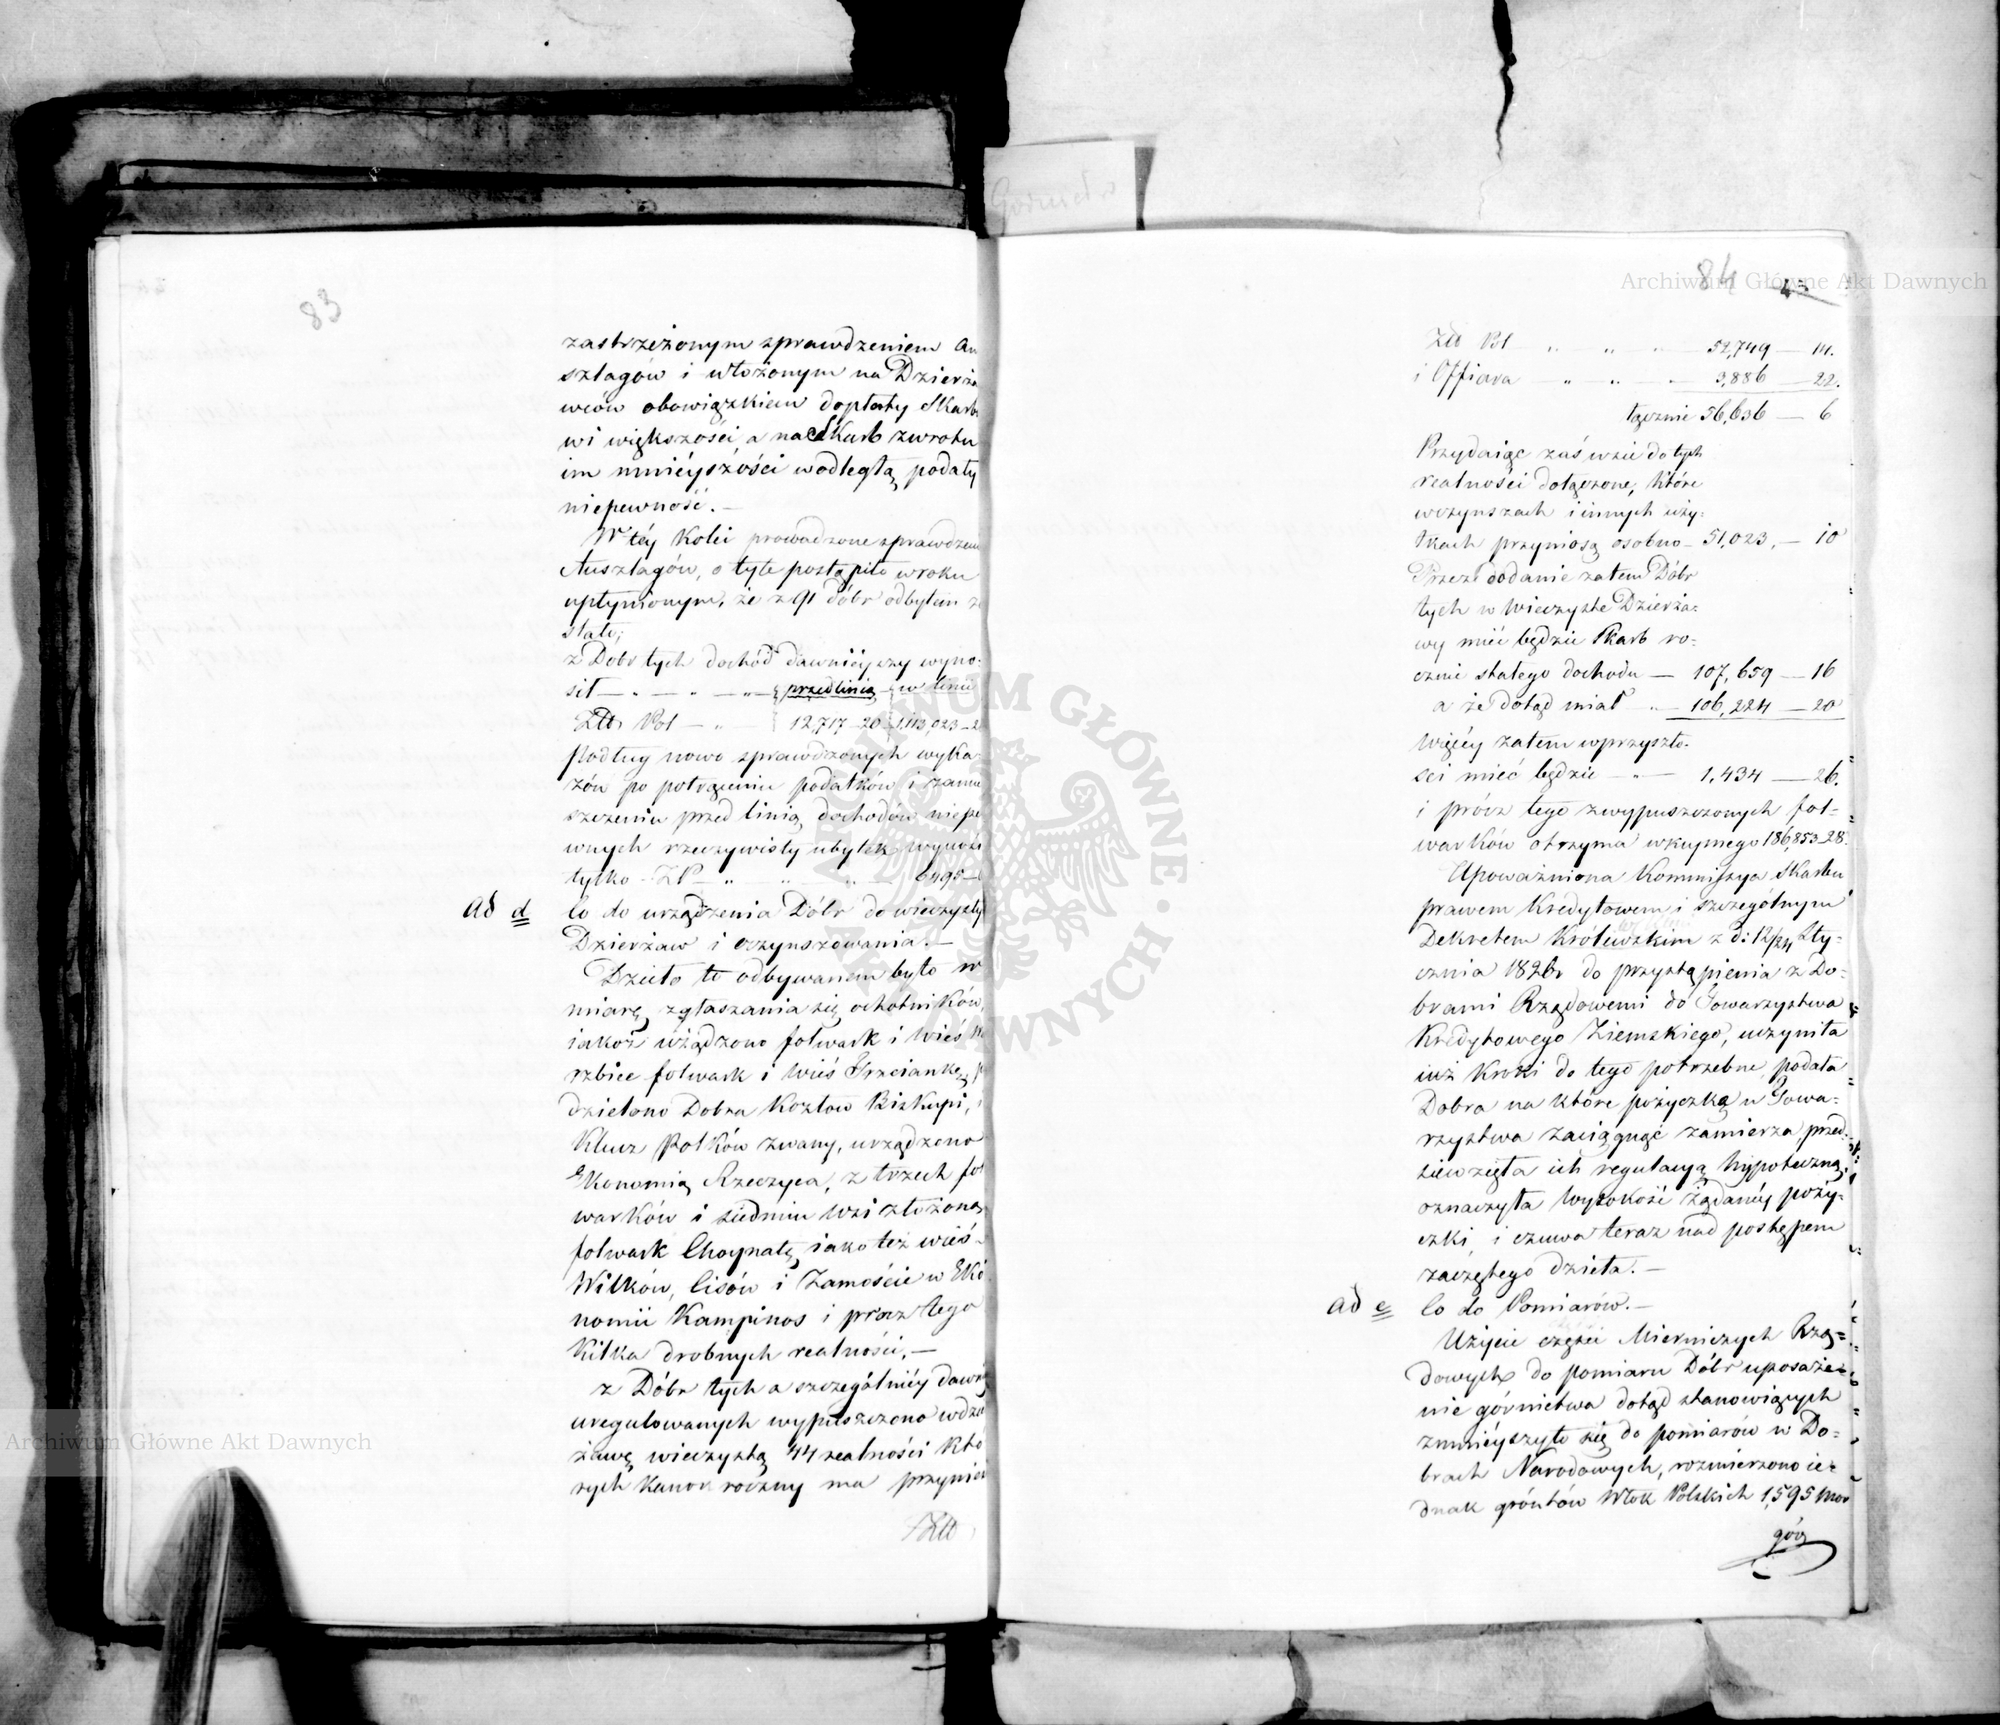 83
zastrzeżonym sprawdzeniem An
szlagów i włożonym na Dzierża
wców obowiązkiem dopłaty Skarbo
wi większości a na Skarb zwrotu
im mnieyszości uodległą podały
niepewność. —
W téy kolei prowadzone sprawdzenie
Anszlagów, o tyle postąpiło w roku
upłynionym, że z 91 dóbr odbytem zo
stało;
z Dobr tych dochód dawniéyszy wyno-
sił — przed linią — w linii
Złł. Pol — 12,717 — 20 1,113,023 — 2
Podług nowo sprawdzonych wyka
zów po potrąceniu podatków i zamie
szczeniu przed linią dochodów niepe
wnych rzeczywisty ubytek wynosi
tylko — ZP — 6495 —
Ad d Co do urządzenia Dóbr do wieczysty
Dzierżaw i oczynszowania. —
Dzieło to odbywanem było w
miarę zgłaszania się ochotników,
iakoż urządzono folwark i wieś
rzbice folwark i wieś Trzciankę, p
dzielono Dobra Kozłow Biskupi,
Klucz Polków zwany, urządzono
Ekonomią Rzeczyca, z trzech fol
warków i siedmiu wsi złożoną,
folwark Choynatę, iako też wieś
Wilków, Cisów i Zamoście w Eko
nomii Kampinos i prócz tego
kilka drobnych realności. —
z Dóbr tych a szczególniéy dawniéy
uregulowanych wypuszczono w dzie
żawę wieczystą 44 realności któ
rych kanon roczny ma przynieść
Złł
84
Złł Pol — 52,749 — 14.
i Offiara — 3,886 — 22.
łącznie 56,636 — 6
Przydaiąc zaś wsie do tych
realności dołączone, które
w czynszach i innych uży-
tkach przyniosą osobno — 51,023, — 10
Przez dodanie zatem Dóbr
tych w wieczyste Dzierża-
wy mieć będzie Skarb ro-
cznie stałego dochodu — 107,659 — 16
a że dotąd miał — 106,224 — 20
więcéy zatem w przyszło-
ści mieć będzie — 1,434 — 26.
i prócz tego z wypuszczonych fol-
warków otrzyma wkupnego 186,853 — 28.
Upoważniona Kommissya Skarbu
prawem Kredytowem i szczególnym
Dekretem Królewskim z d: 12/24 Sty-
cznia 1826r do przystąpienia z Do-
brami Rządowemi do Towarzystwa
Kredytowego Ziemskiego, uczyniła
iuż kroki do tego potrzebne, podała
Dobra na które pożyczkę u Towa-
rzystwa zaciągnąć zamierza przed-
siewzięła ich regulacyą hypoteczną,
oznaczyła wysokość żądanéy poży-
czki i czuwa teraz nad postępem
zaczętego dzieła. —
Ad e Co do Pomiarów. —
Użycie części Mierniczych Rzą-
dowych do pomiaru Dóbr uposaże-
nie górnictwa dotąd stanowiących
zmnieyszyło się do pomiarów w Do-
brach Narodowych, rozmierzono ie-
dnak gróntów Włok Polskich 1,595 mor
gów
Archiwum Główne Akt Dawnych
Archiwum Główne Akt Dawnych
ARCHIWUM GŁÓWNE AKT DAWNYCH